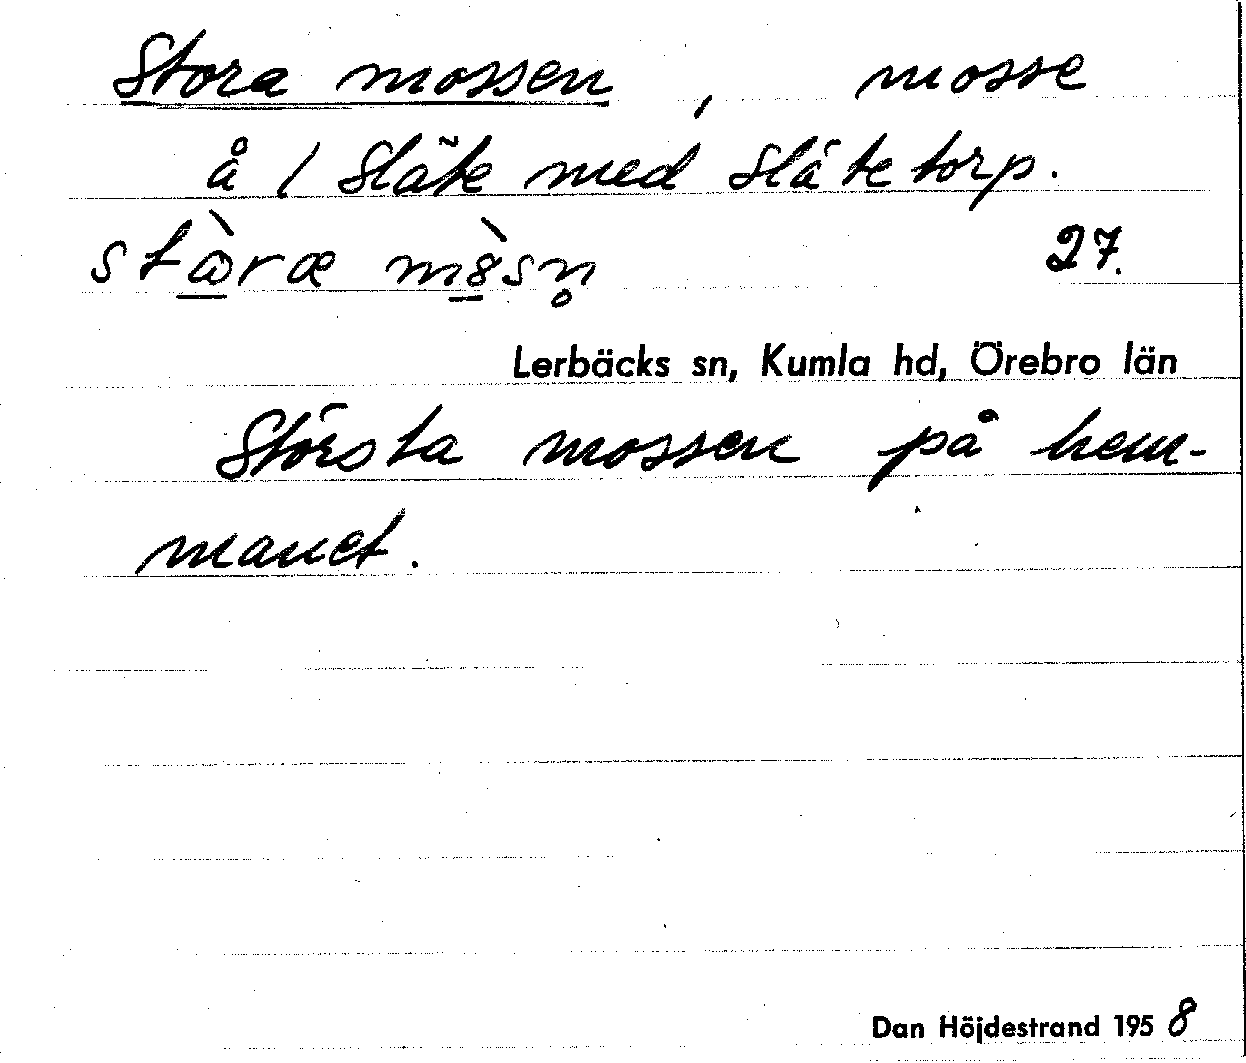 Stora mossen, mosse
å 1 Släte med Slätetorp.
stɷ̀ræ mȣ̀sn̥ 27.
Lerbäcks sn, Kumla hd, Örebro län
Största mossen på hem-
manet.
Dan Höjdestrand 1958